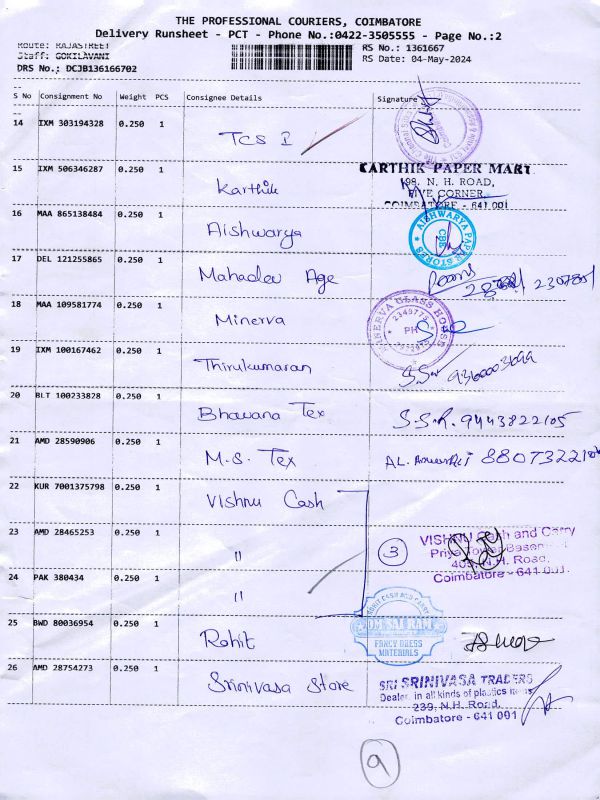 THE PROFESSIONAL COURIERS, COIMBATORE
Delivery Runsheet - PCT - Phone No.:0422-3505555 - Page No.:2
Route: RAJASTREET
Staff: GOKILAVANI
DRS No.: DCJB136166702
RS No.: 1361667
RS Date: 04-May-2024
S No Consignment No Weight PCS Consignee Details Signature
14 IXM 303194328 0.250 1 TCS I
15 IXM 506346287 0.250 1 Karthik
KARTHIK PAPER MART
198, N. H. ROAD,
FIVE CORNER,
COIMBATORE - 641 001
16 MAA 865138484 0.250 1 Aishwarya
AISHWARYA PAPER STORES
CBE
17 DEL 121255865 0.250 1 Mahadev Age
2307801
18 MAA 109581774 0.250 1 Minerva
MINERVA GLASS HOUSE
2349775
PH
19 IXM 100167462 0.250 1 Thirukumaran
9360003699
20 BLT 100233828 0.250 1 Bhavana Tex S.S.R. 9443822105
21 AMD 28590906 0.250 1 M.S. Tex AL.
22 KUR 7001375798 0.250 1 Vishnu Cash
23 AMD 28465253 0.250 1 "
3
VISHNU Cash and Carry
Priya Tower Basement
405, N.H. Road,
Coimbatore - 641 001.
24 PAK 380434 0.250 1 "
25 BWD 80036954 0.250 1 Rohit
OM SAI RAM
FANCY DRESS
MATERIALS
26 AMD 28754273 0.250 1 Srinivasa Store
SRI SRINIVASA TRADERS
Dealer in all kinds of plastics items
239, N.H. Road,
Coimbatore - 641 001
9